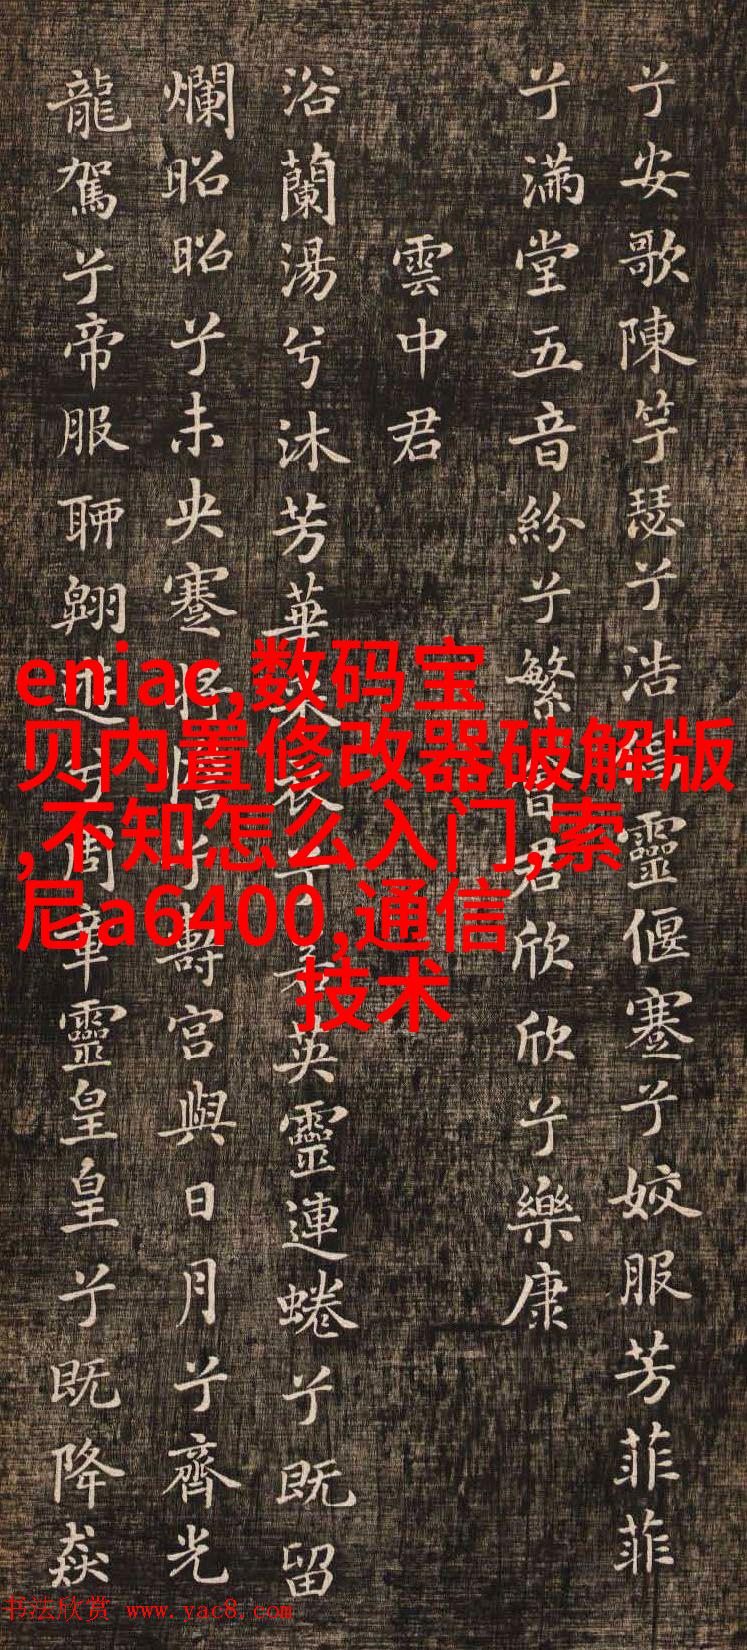 兮安歌陳竽瑟兮浩倡靈偃蹇兮姣服芳菲菲
兮滿堂五音紛兮繁會君欣欣兮樂康
雲中君
浴蘭湯兮沐芳華采衣兮若英靈連蜷兮既留
爛昭昭兮未央蹇將憺兮壽宮與日月兮齊光
龍駕兮帝服聊翱遊兮周章靈皇皇兮既降猋
eniac,数码宝
贝内置修改器破解版
,不知怎么入门,索
尼a6400,通信
技术
书法欣赏 www.yac8.com